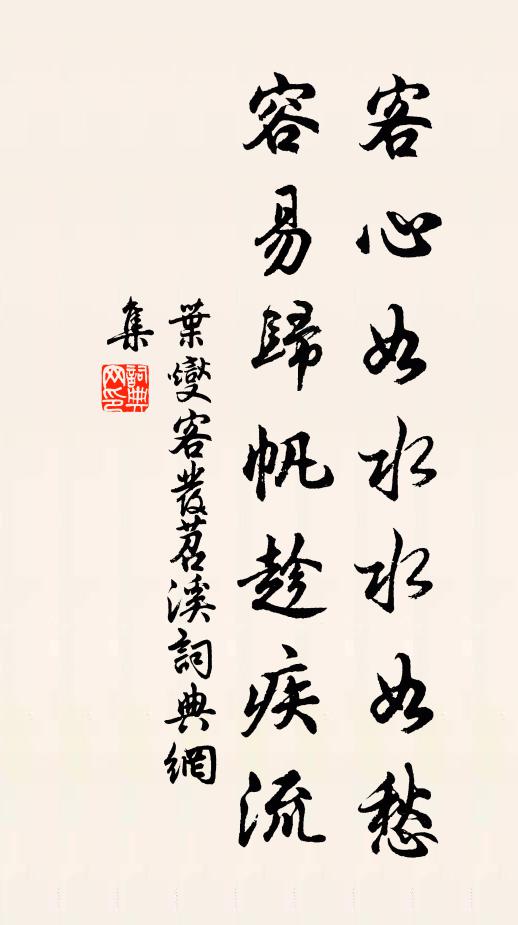 客心如水水如愁
容易歸帆趁疾流
葉燮客發苕溪詞典網
集
詞典
网印